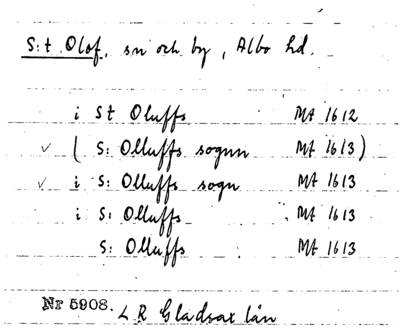 S:t Olof, sn och by, Albo hd.
i St Oluffs Mt 1612
✓ ( S: Olluffs sognn Mt 1613)
✓ i S: Olluffs sogn Mt 1613
i S: Olluffs Mt 1613
S: Olluffs Mt 1613
Nr 5908. L R Gladsax län